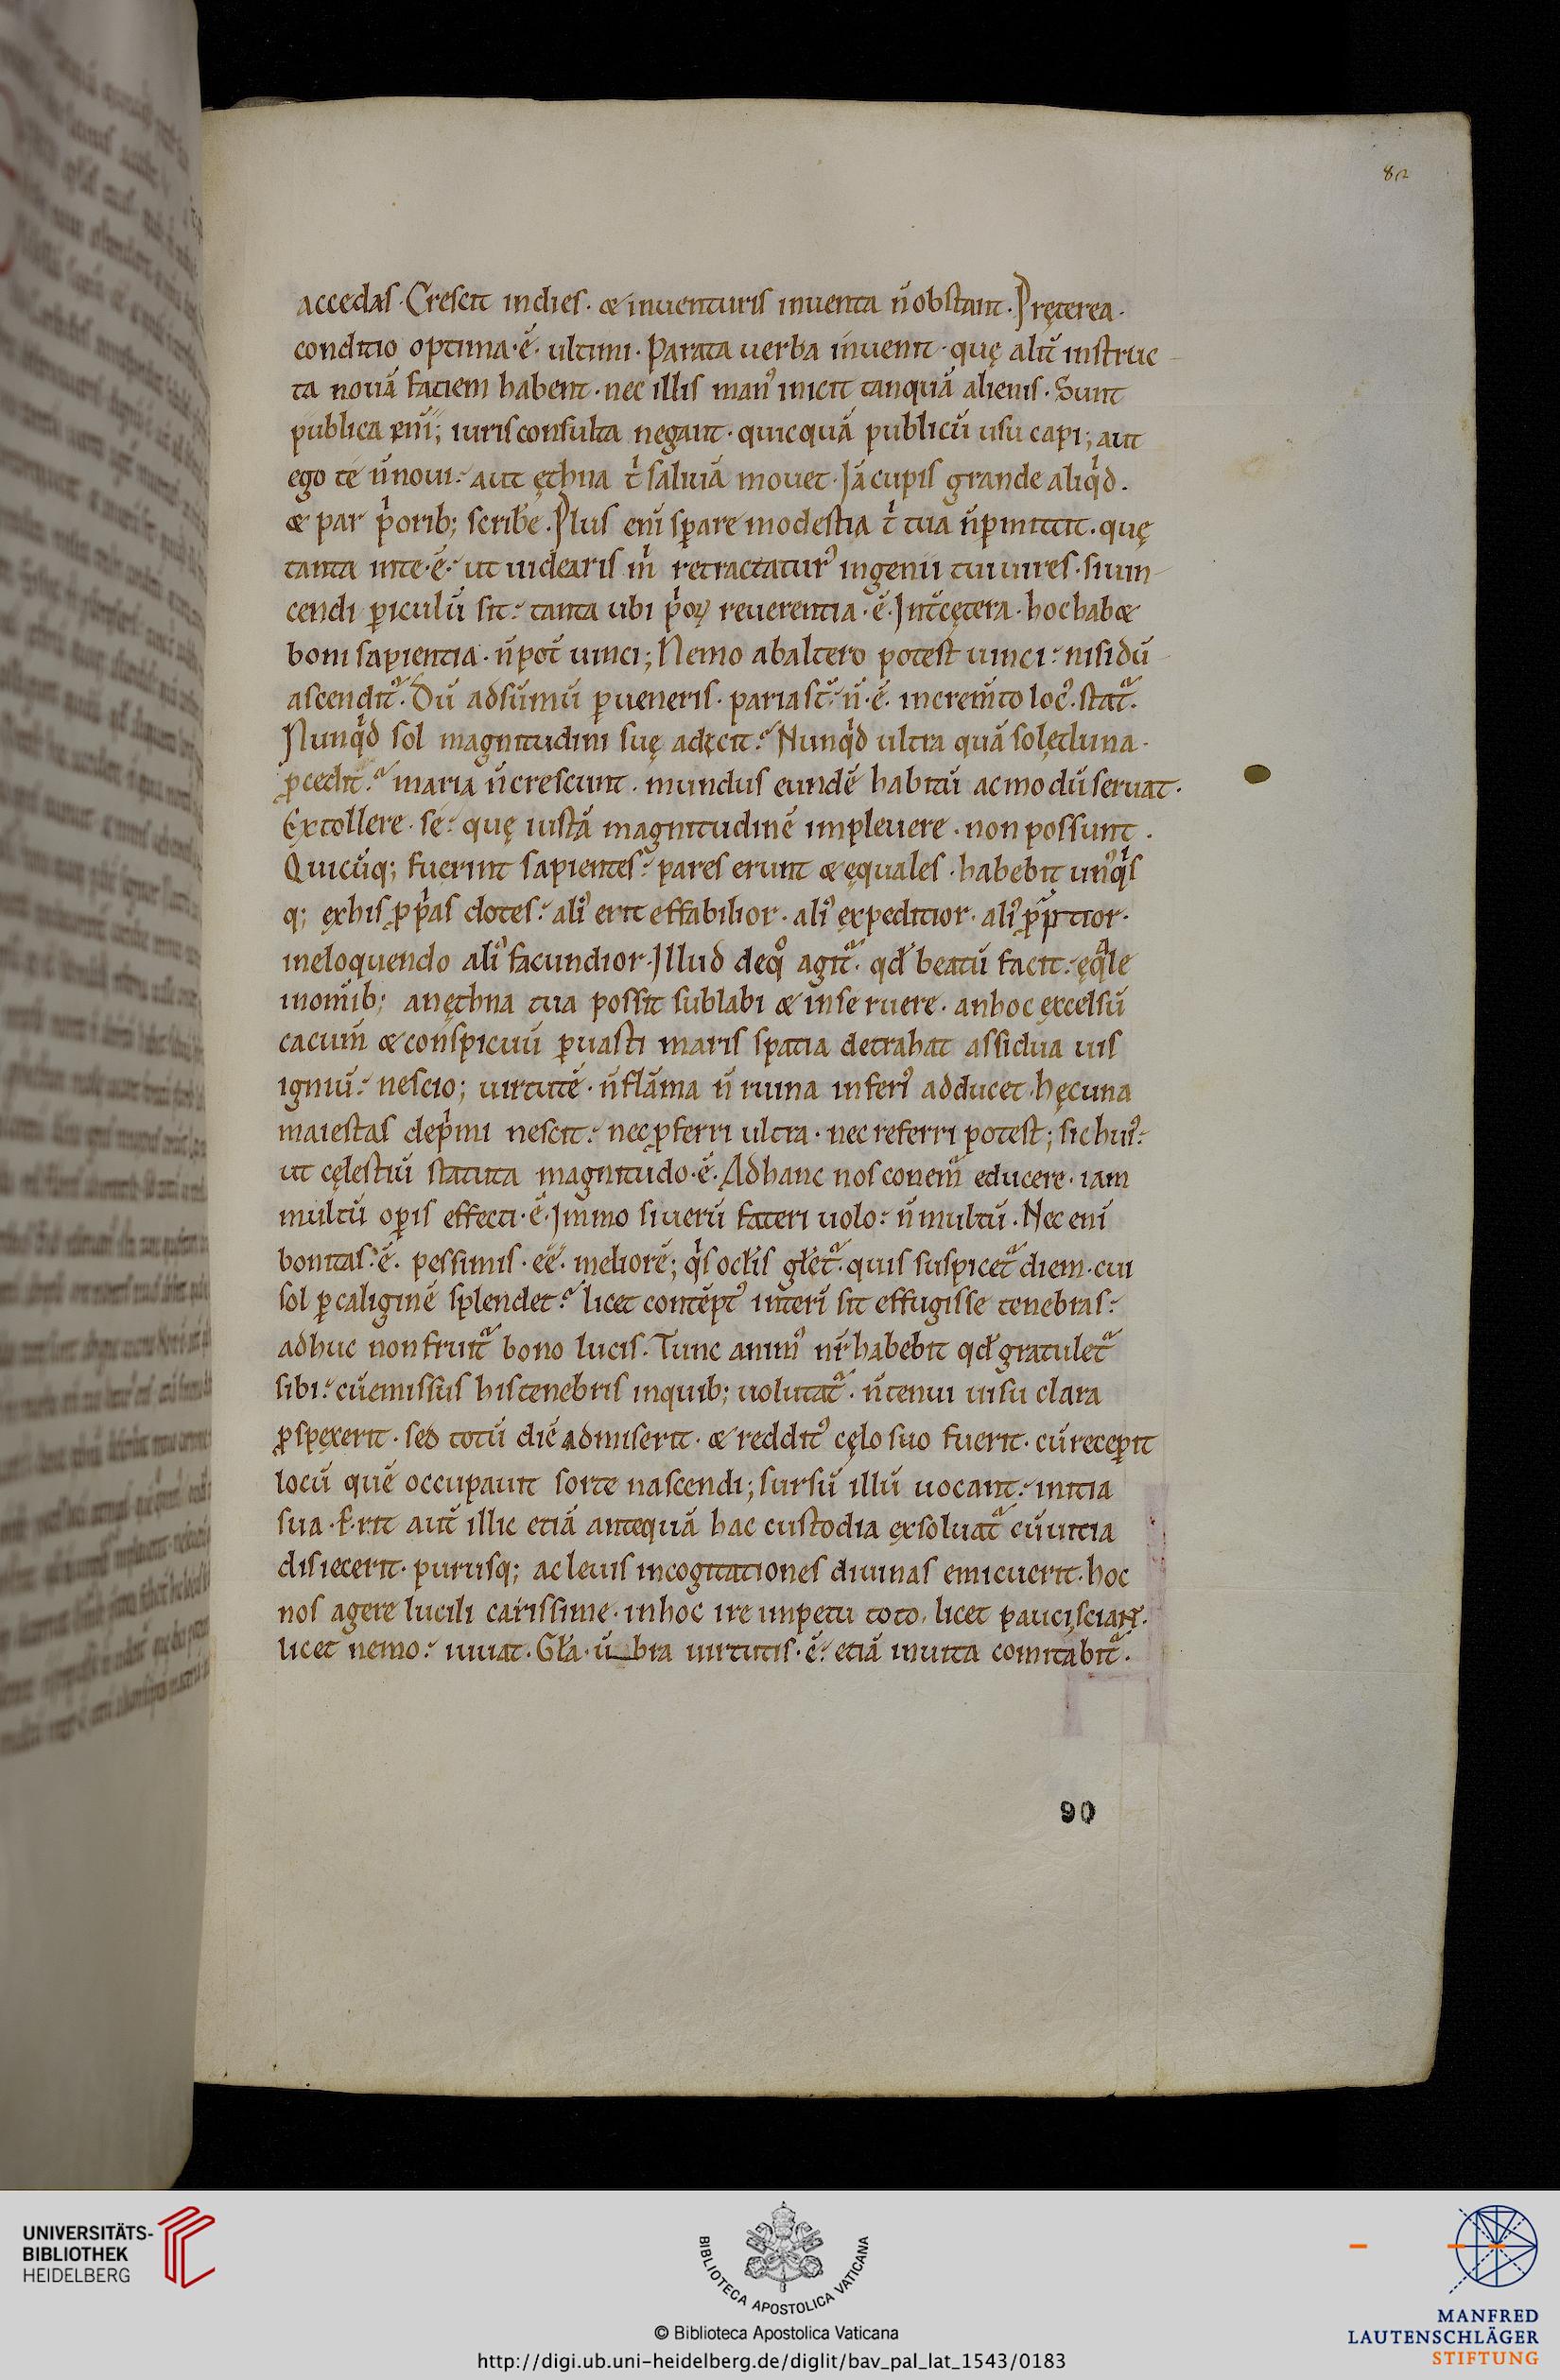 82
accedas· Crescit indies· & inuenturis inuenta n̄ obstant· Pręterea·
conditio optima·ē· ultimi· Parata uerba inuenit· quę alit̄ instruc
ta nouā faciem habent· nec illis man᾿ inicit tanquā alienis· Sunt
publica eni̅; iurisconsulta negant· quicquā publicū usu capi; aut
ego te n̄ noui· aut ęthna t͛ saliuā mouet· Iā cupis grande aliq͛d·
& par p͛orib; scribe᷑· Plus eni̅ sꝑare modestia t͛ tua n̄ ꝑmittit· quę
tanta inte·ē· ut uidearis m͛ retractatur᾿ ingenii tui uires· si uin
cendi ꝑiculū sit· tanta ubi p͛oꝝ reuerentia·ē· Int̄ cętera· hoc hab&
boni sapientia· n̄ pot̄ uinci; Nemo abaltero potest uinci· nisi dū
ascendit᷑· Dū adsūmū ꝑueneris· paria st̄· n̄·ē· increm̄to loc᾿· stat᷑·
Nunq͛d sol magnitudini suę adęcit· Nunq͛d ultra quā solęt luna·
ꝓcedit· maria n̄ crescunt· mundus eundē habitū ac modū seruat·
Extollere· se· quę iustā magnitudinē impleuere· non possunt·
Quicūq; fuerint sapientes· pares erunt & ęquales· habebit un᾿q͛s
q; exhis ꝓp͛as dotes· ali᾿ erit effabilior· ali᾿ expeditior· ali᾿ ꝓp̄tior·
ineloquendo ali᾿ facundior· Illud deq° agit᷑· qđ beatū facit· ęq̊le
inom̄ib; anęthna tua possit sublabi & inse ruere· anhoc excelsū
cacum̄ & conspicuū ꝑuasti maris spatia detrahat assidua uis
igniū· nescio; uirtutē· n̄ flāma n̄ ruina inferi᾿ adducet· hęc una
maiestas dep͛mi nescit· nec ꝓferri ultra· nec referri potest; sic hui᾿·
ut cęlestiū statuta magnitudo·ē· Adhanc nos conem᷑ educere· iam
multū oꝑis effecti·ē· Immo si uerū fateri uolo· n̄ multū· Nec eni̅
bonitas·ē· pessimis·ēē· meliorē; q͛s ocłis głet᷑· quis suspicet᷑ diem· cui
sol ꝑcaliginē splendet· licet contēpt᾿ interi̅ sit effugisse tenebras·
adhuc non fruit᷑ bono lucis· Tunc anim᾿ nr̄ habebit qđ gratulet᷑
sibi· cū emissus his tenebris inquib; uolutat᷑· n̄ tenui uisu clara
ꝓspexerit· sed totū diē admiserit· & reddit᾿ cęlo suo fuerit· cū receꝑit
locū quē occupauit sorte nascendi; sursū illū uocant· initia
sua· Erit aut̄ illic etiā antequā hac custodia exsoluat᷑ cū uitia
disiecerit· purusq; ac leuis incogitationes diuinas emicuerit· hoc
nos agere lucili carissime· inhoc ire impetu toto· licet pauci sciant·
licet nemo· iuuat· Gła· ūbra uirtutis·ē· etiā inuita comitabit᷑·
90
UNIVERSITÄTS-
BIBLIOTHEK
HEIDELBERG
BIBLIOTECA APOSTOLICA VATICANA
© Biblioteca Apostolica Vaticana
http://digi.ub.uni-heidelberg.de/diglit/bav_pal_lat_1543/0183
MANFRED
LAUTENSCHLÄGER
STIFTUNG